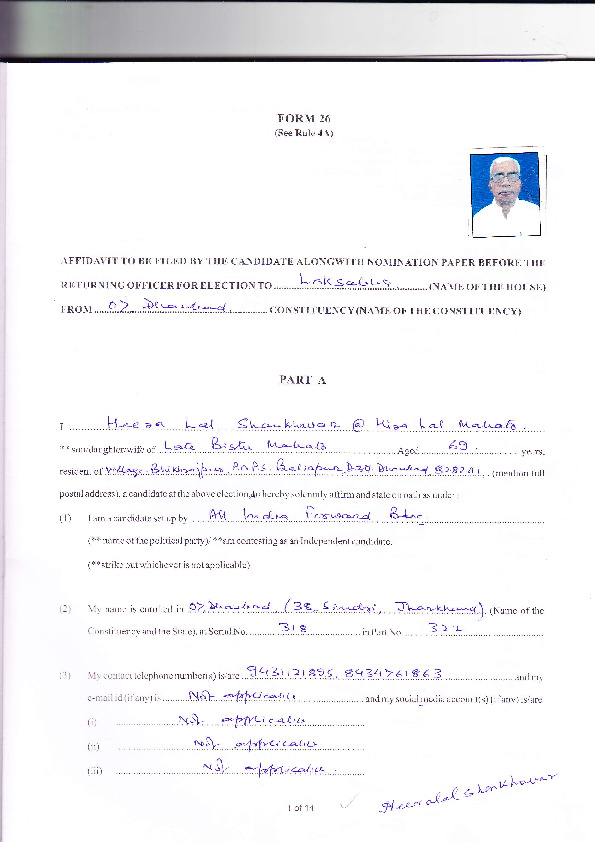 FORM 26
(See Rule 4A)
AFFIDAVIT TO BE FILED BY THE CANDIDATE ALONGWITH NOMINATION PAPER BEFORE THE
RETURNING OFFICER FOR ELECTION TO (NAME OF THE HOUSE)
FROM 07 Dhanbad CONSTITUENCY (NAME OF THE CONSTITUENCY)
PART A
I Heera Lal Shankhwar @ Hira Lal Mahato
**son/daughter/wife of Late Mahato Aged 69 years,
resident of Village P.O. P.S. Baliapur Dhanbad (mention full
postal address), a candidate at the above election, do hereby solemnly affirm and state on oath as under:
(1) I am a candidate set up by All India Forward Bloc
(**name of the political party)/ **am contesting as an Independent candidate.
(**strike out whichever is not applicable)
(2) My name is enrolled in 07 Dhanbad (38 Sindri, Jharkhand) (Name of the
Constituency and the State), at Serial No. 318 in Part No. 322
(3) My contact telephone number(s) is/are 9431121895, 8434761863 and my
e-mail id (if any) is Not applicable and my social media account(s) (if any) is/are
(i) Not applicable
(ii) Not applicable
(iii) Not applicable
1 of 14
Heeralal Shankhawar